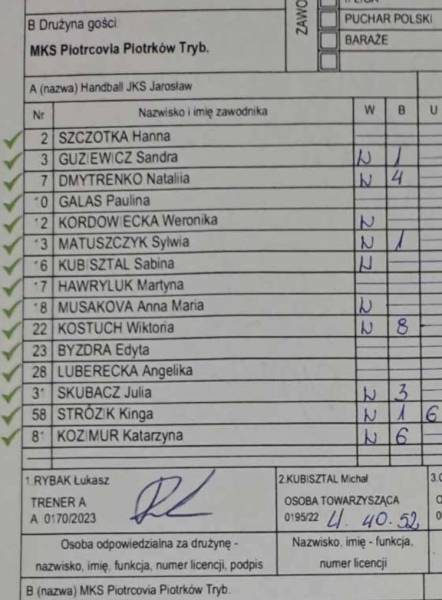 PUCHAR POLSKI
B Drużyna gości:
BARAŻE
MKS Piotrcovia Piotrków Tryb.
A (nazwa) Handball JKS Jarosław
Nr Nazwisko i imię zawodnika W B U
2 SZCZOTKA Hanna
3 GUZIEWICZ Sandra N 1
7 DMYTRENKO Nataliia N 4
10 GALAS Paulina
12 KORDOWIECKA Weronika N
13 MATUSZCZYK Sylwia N 1
16 KUBISZTAL Sabina N
17 HAWRYLUK Martyna
18 MUSAKOVA Anna Maria N
22 KOSTUCH Wiktoria N 8
23 BYZDRA Edyta
28 LUBERECKA Angelika
31 SKUBACZ Julia N 3
58 STRÓZIK Kinga N 1 6
81 KOZIMUR Katarzyna N 6
1.RYBAK Łukasz 2.KUBISZTAL Michał
TRENER A OSOBA TOWARZYSZĄCA
A 0170/2023 0195/22 4. 40.52
Osoba odpowiedzialna za drużynę - Nazwisko, imię - funkcja,
nazwisko, imię, funkcja, numer licencji, podpis numer licencji
B (nazwa) MKS Piotrcovia Piotrków Tryb.